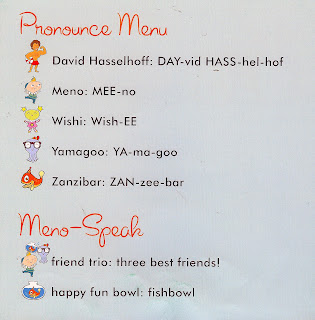 Pronounce Menu
David Hasselhoff: DAY-vid HASS-hel-hof
Meno: MEE-no
Wishi: Wish-EE
Yamagoo: YA-ma-goo
Zanzibar: ZAN-zee-bar
Meno-Speak
friend trio: three best friends!
happy fun bowl: fishbowl